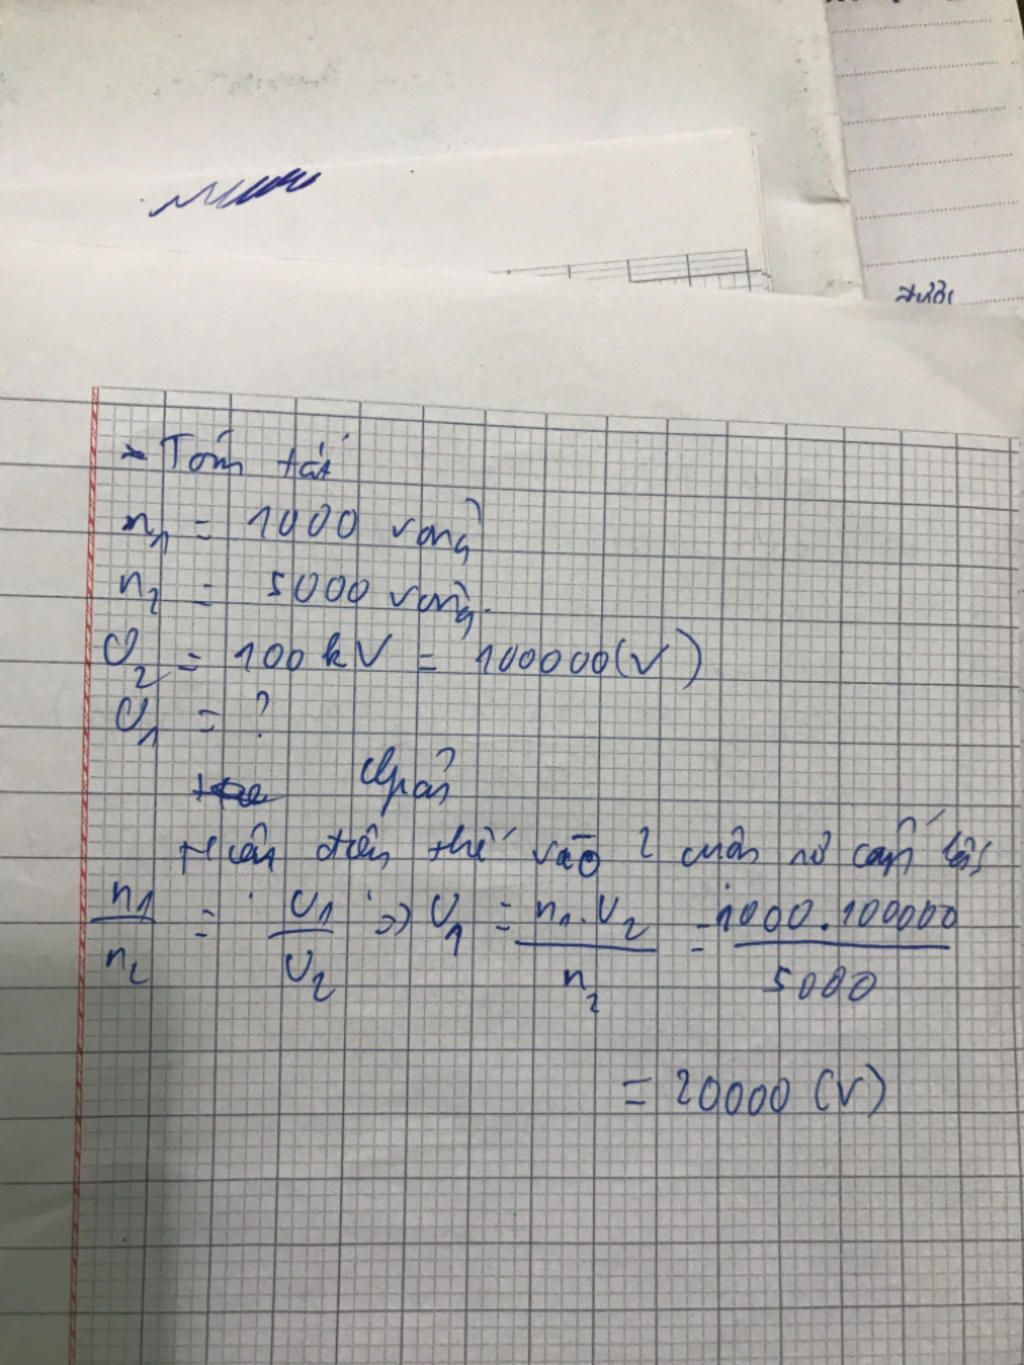 được
* Tóm tắt
n₁ = 1000 vòng
n₂ = 5000 vòng.
U₂ = 100 kV = 100000 (V)
U₁ = ?
Giải
điện thế vào 2 cuộn
n₁/n₂ = U₁/U₂ => U₁ = n₁.U₂/n₂ = 1000.100000/5000
= 20000 (V)